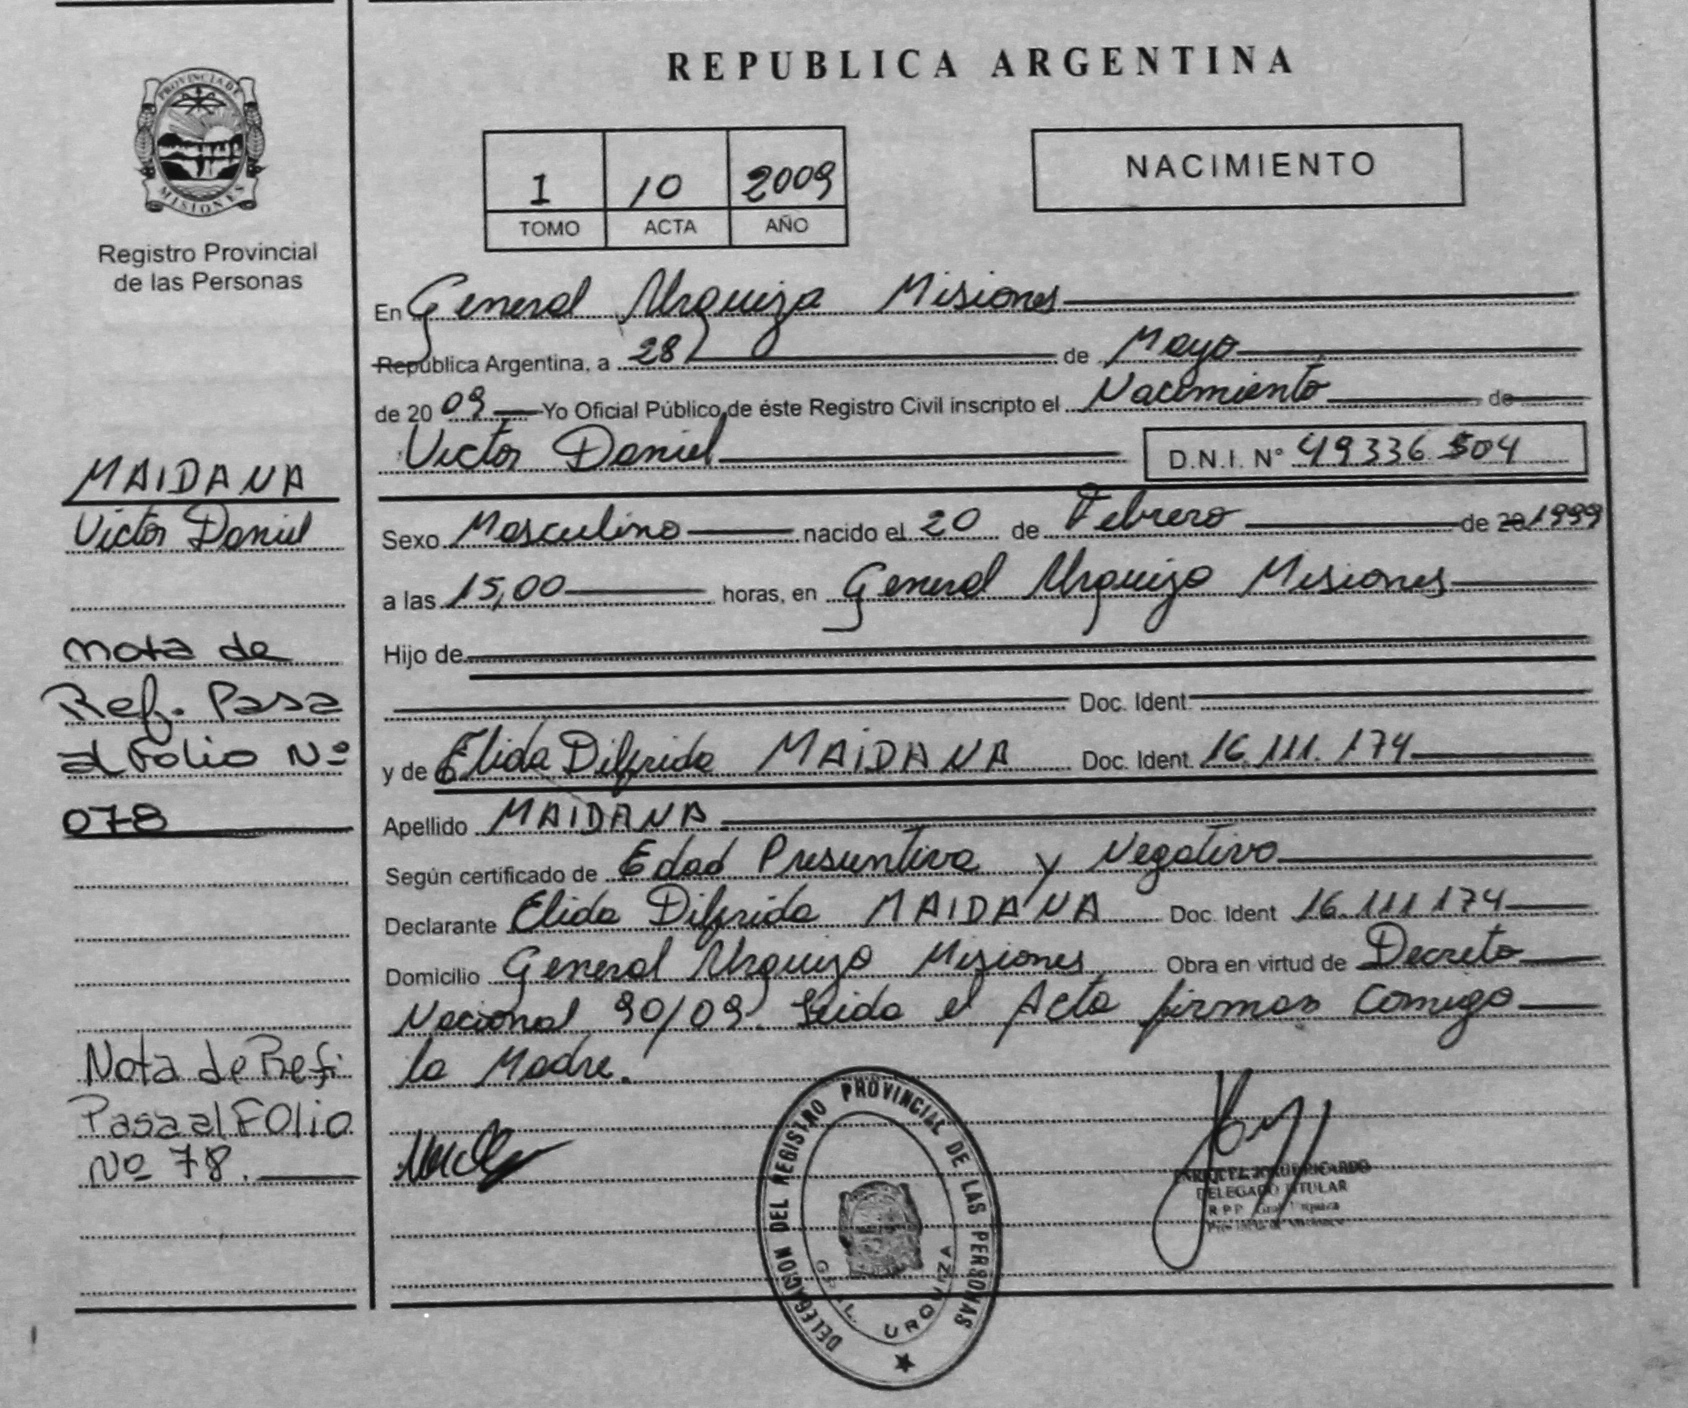 REPUBLICA ARGENTINA
PROVINCIA DE
MISIONES
Registro Provincial
de las Personas
1 10 2009
TOMO ACTA AÑO
NACIMIENTO
En General Urquiza Misiones
República Argentina, a 28 de Mayo
de 20 09 Yo Oficial Público de éste Registro Civil inscripto el Nacimiento de
Victor Daniel D.N.I. N° 49336.504
Sexo Masculino nacido el 20 de Febrero de 20 1999
a las 15,00 horas, en General Urquiza Misiones
Hijo de
Doc. Ident.
y de Elida Dilfrida MAIDANA Doc. Ident. 16.111.174
Apellido MAIDANA
Según certificado de Edad Presuntiva y Negativo
Declarante Elida Dilfrida MAIDANA Doc. Ident 16.111.174
Domicilio General Urquiza Misiones Obra en virtud de Decreto
Nacional 90/09. Leida el Acta firman comigo
la Madre.
MAIDANA
Victor Daniel
nota de
Ref. Pasa
al Folio Nº
078
Nota de Ref:
Pasa al FOlio
Nº 78.
DELEGACION DEL REGISTRO PROVINCIAL DE LAS PERSONAS
GRAL. URQUIZA
DELEGADO TITULAR
R.P.P. Gral. Urquiza